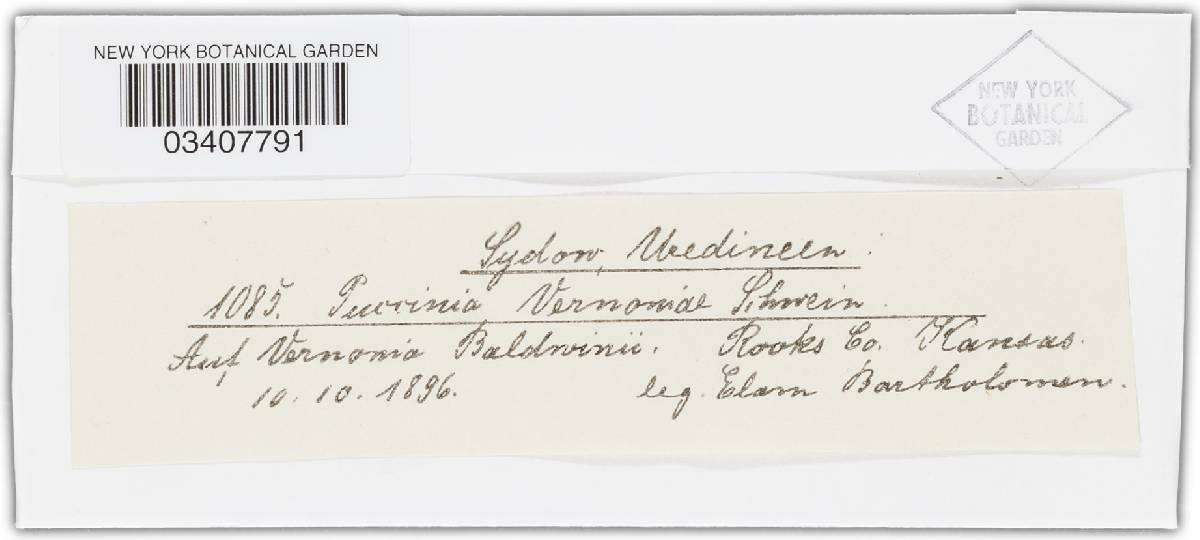 NEW YORK BOTANICAL GARDEN
03407791
NEW YORK
BOTANICAL
GARDEN
Sydow, Uredineen.
1085. Puccinia Vernoniae Schwein.
Auf Vernonia Baldwinii. Rooks Co. Kansas.
10. 10. 1896. leg. Elam Bartholomew.